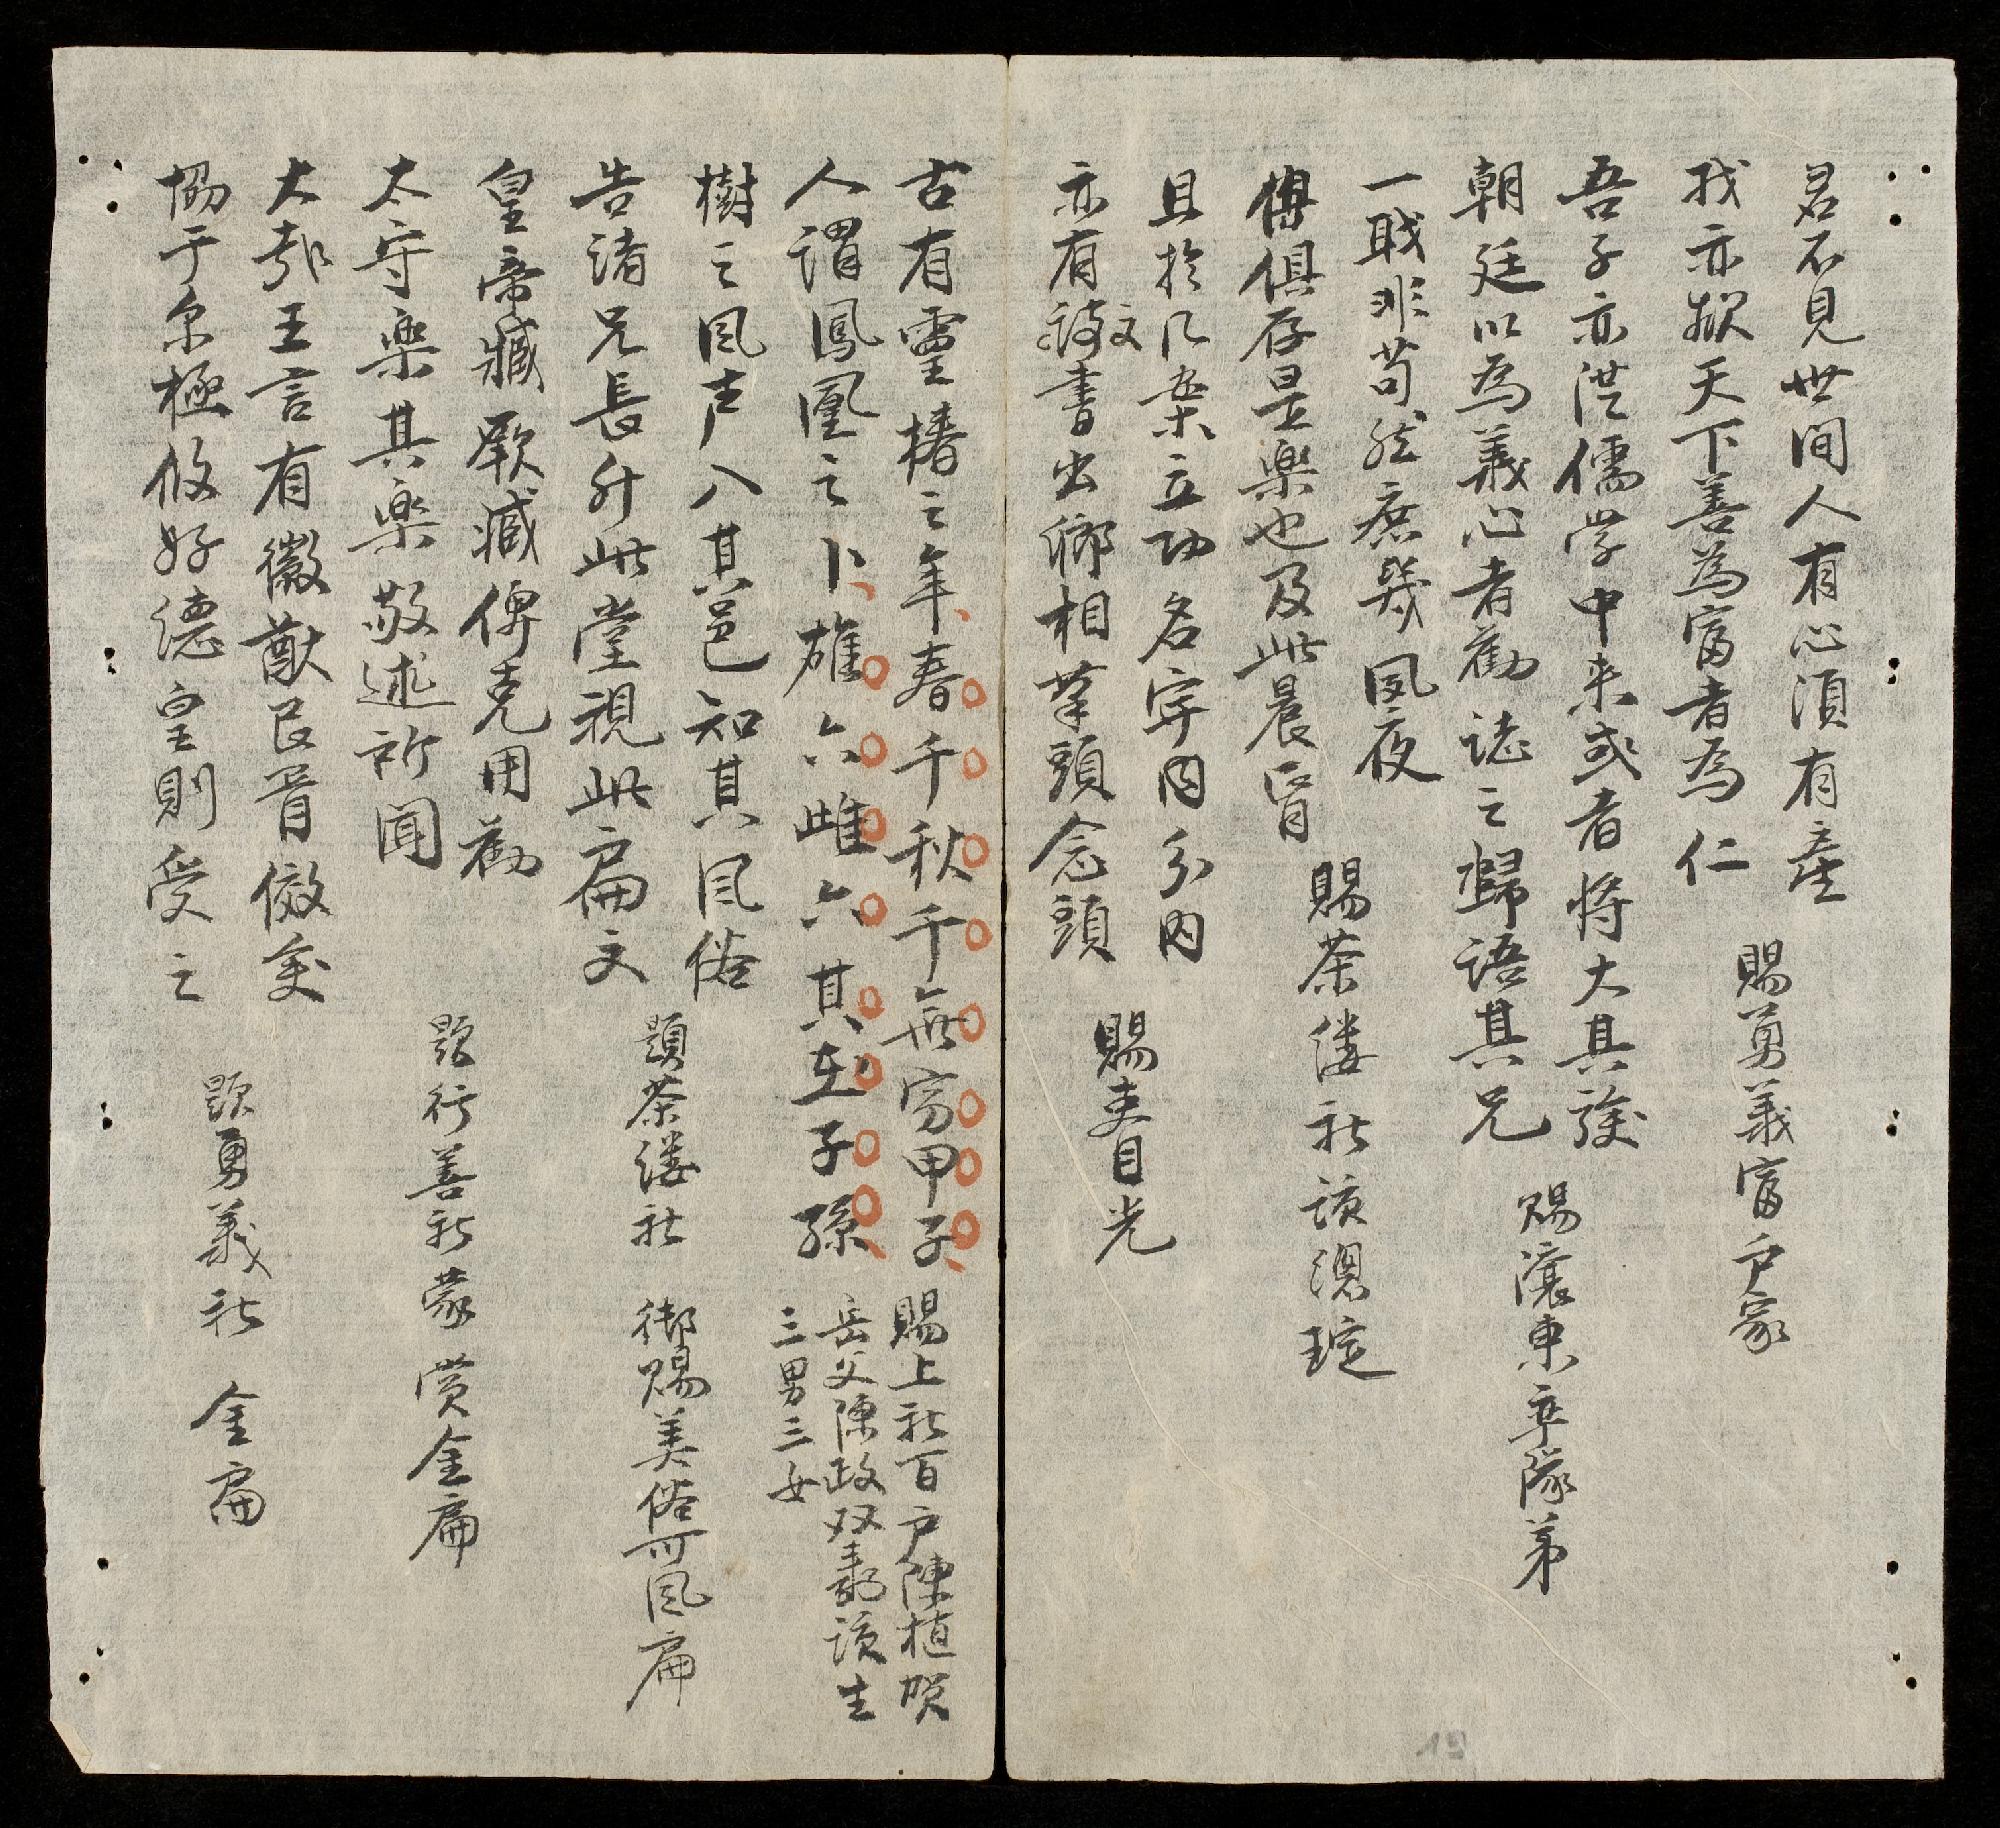 君不見世间人有心須有產
我亦擬天下善為富者為仁
賜勇義富户家
吾子亦従儒学中来或者将大其談
朝廷以為義心者勸誌之歸語其兄
賜瀼東亭隊弟
一戝非苟然庶幾夙夜
俱存是樂也及此晨昏
賜茶偻社該混琔
且於几案立功名字内分内
亦有文書出鄉相業頭念頭
賜吏目光
古有靈椿之年春千秋千無窮甲子
人謂鳳凰之卜雄六雌六其在子孫
賜上社百户陳植賀
岳父陳政双壽該生
三男三女
樹之风声入其邑知其风俗
告诸兄長升此堂視此扁文
題茶偻社 御賜美俗可风扁
皇帝臧厥臧俾克用勸
太守樂其樂敬述所聞
題行善社蒙賞金扁
大哉王言有徽猷民胥傚矣
協于尔極攸好德皇則受之
題勇義社 金扁
19